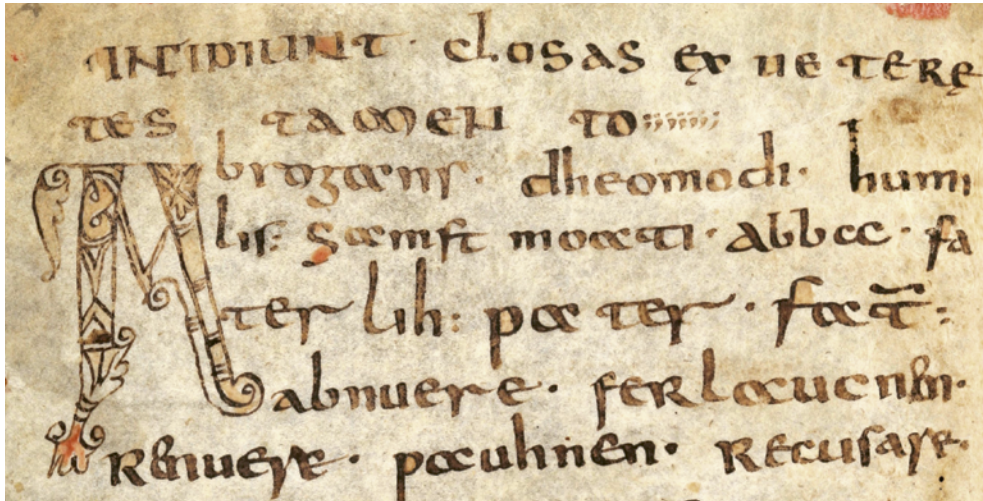 INCIPIUNT · CLOSAS EX UETERE
TES TAMEN TO
Abrogans · dheomodi · humi
lis : samft moati · abba · fa
ter lih : pater · fat̄ :
abnuere · ferlaucnen ·
Renuere · pauhnen · Recusare ·